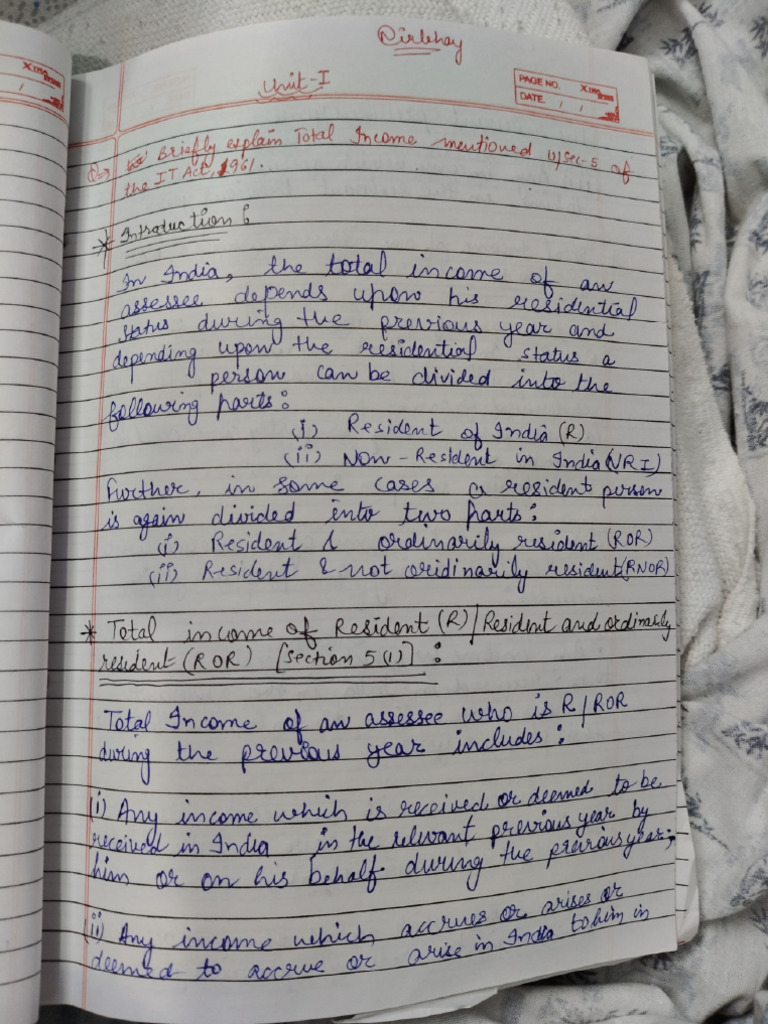 Nirbhay
Unit-I
PAGE NO.
DATE. / /
Q→ Briefly explain Total Income mentioned u/sec-5 of
the IT Act, 1961.
* Introduction :
In India, the total income of an
assessee depends upon his residential
status during the previous year and
depending upon the residential status a
person can be divided into the
following parts :
(i) Resident of India (R)
(ii) Non-Resident in India (NRI)
Further, in some cases a resident person
is again divided into two parts :
(i) Resident & ordinarily resident (ROR)
(ii) Resident & not oridinarily resident (RNOR)
* Total income of Resident (R)/Resident and ordinarily
resident (ROR) [Section 5(1)] :
Total Income of an assessee who is R/ROR
during the previous year includes :
(i) Any income which is received or deemed to be
received in India in the relevant previous year by
him or on his behalf during the previous year;
(ii) Any income which accrues or arises or
deemed to accrue or arise in India to him in